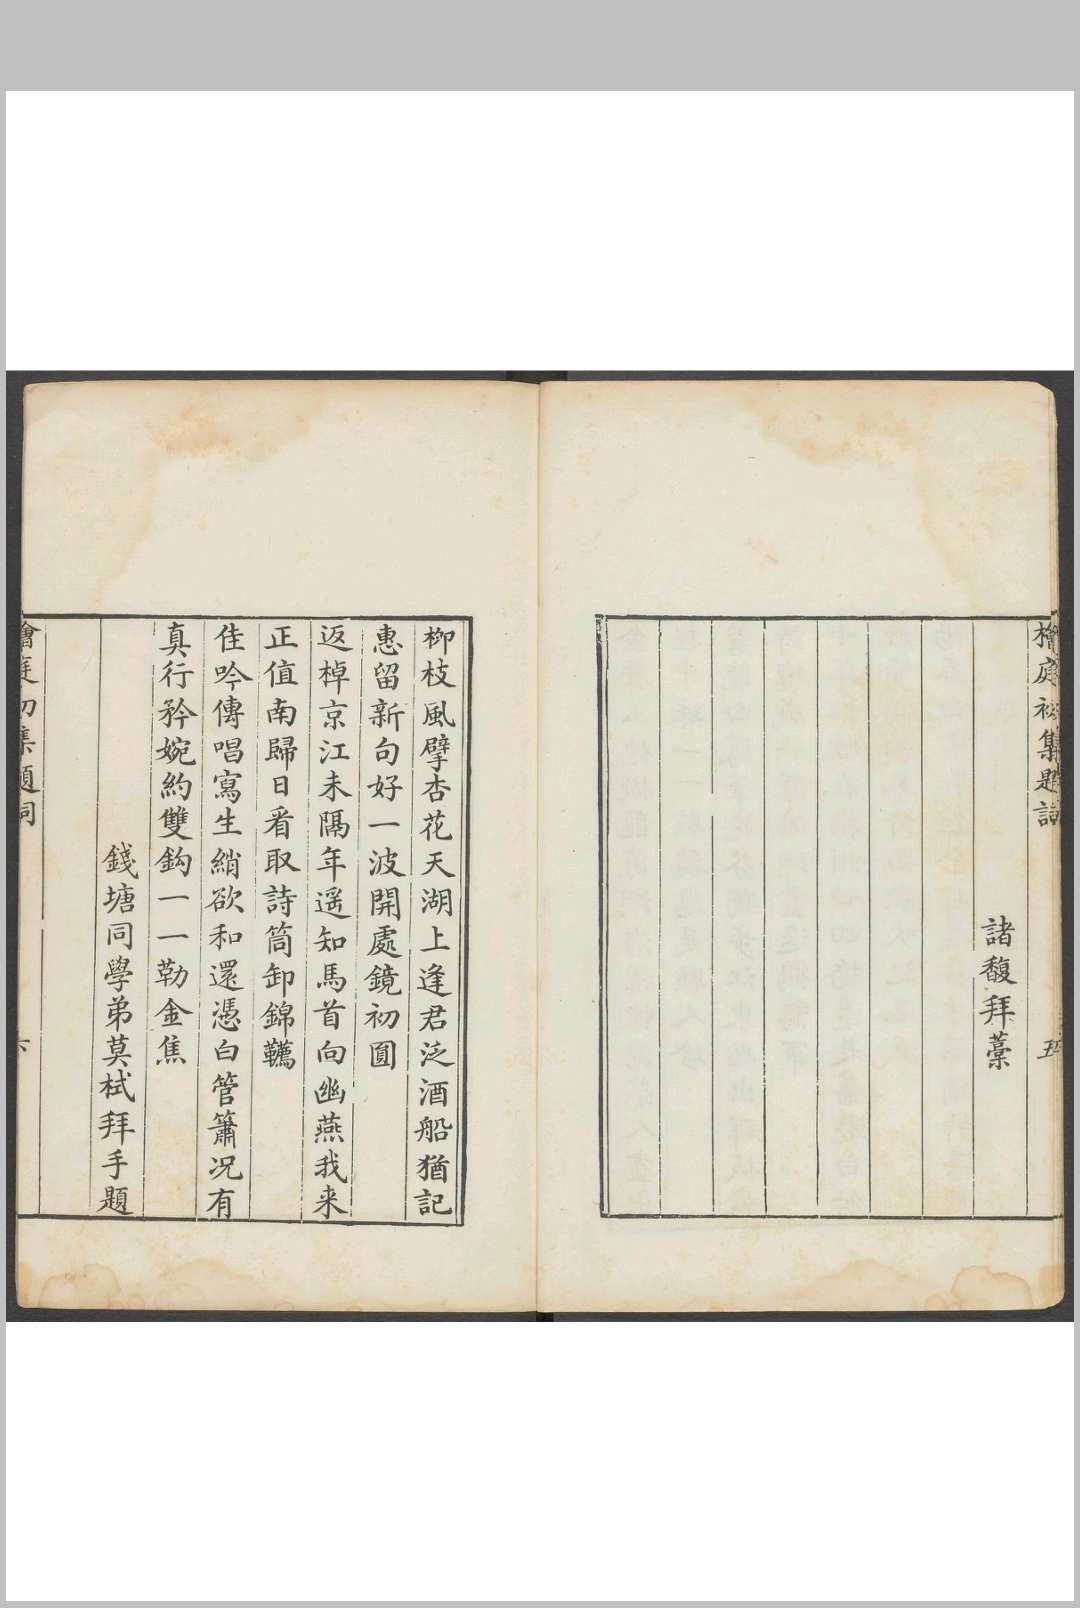 檜庭初集題詞
五
諸馥拜藁
柳枝風擘杏花天湖上逢君泛酒船猶記
惠留新句好一波開處鏡初圓
返棹京江未隔年遥知馬首向幽燕我来
正值南歸日㸔取詩筒卸錦韉
佳吟傳唱寫生綃欲和還憑白管簫况有
真行矜婉約雙鈎一一勒金焦
錢塘同學弟莫栻拜手題
檜庭初集題詞
六